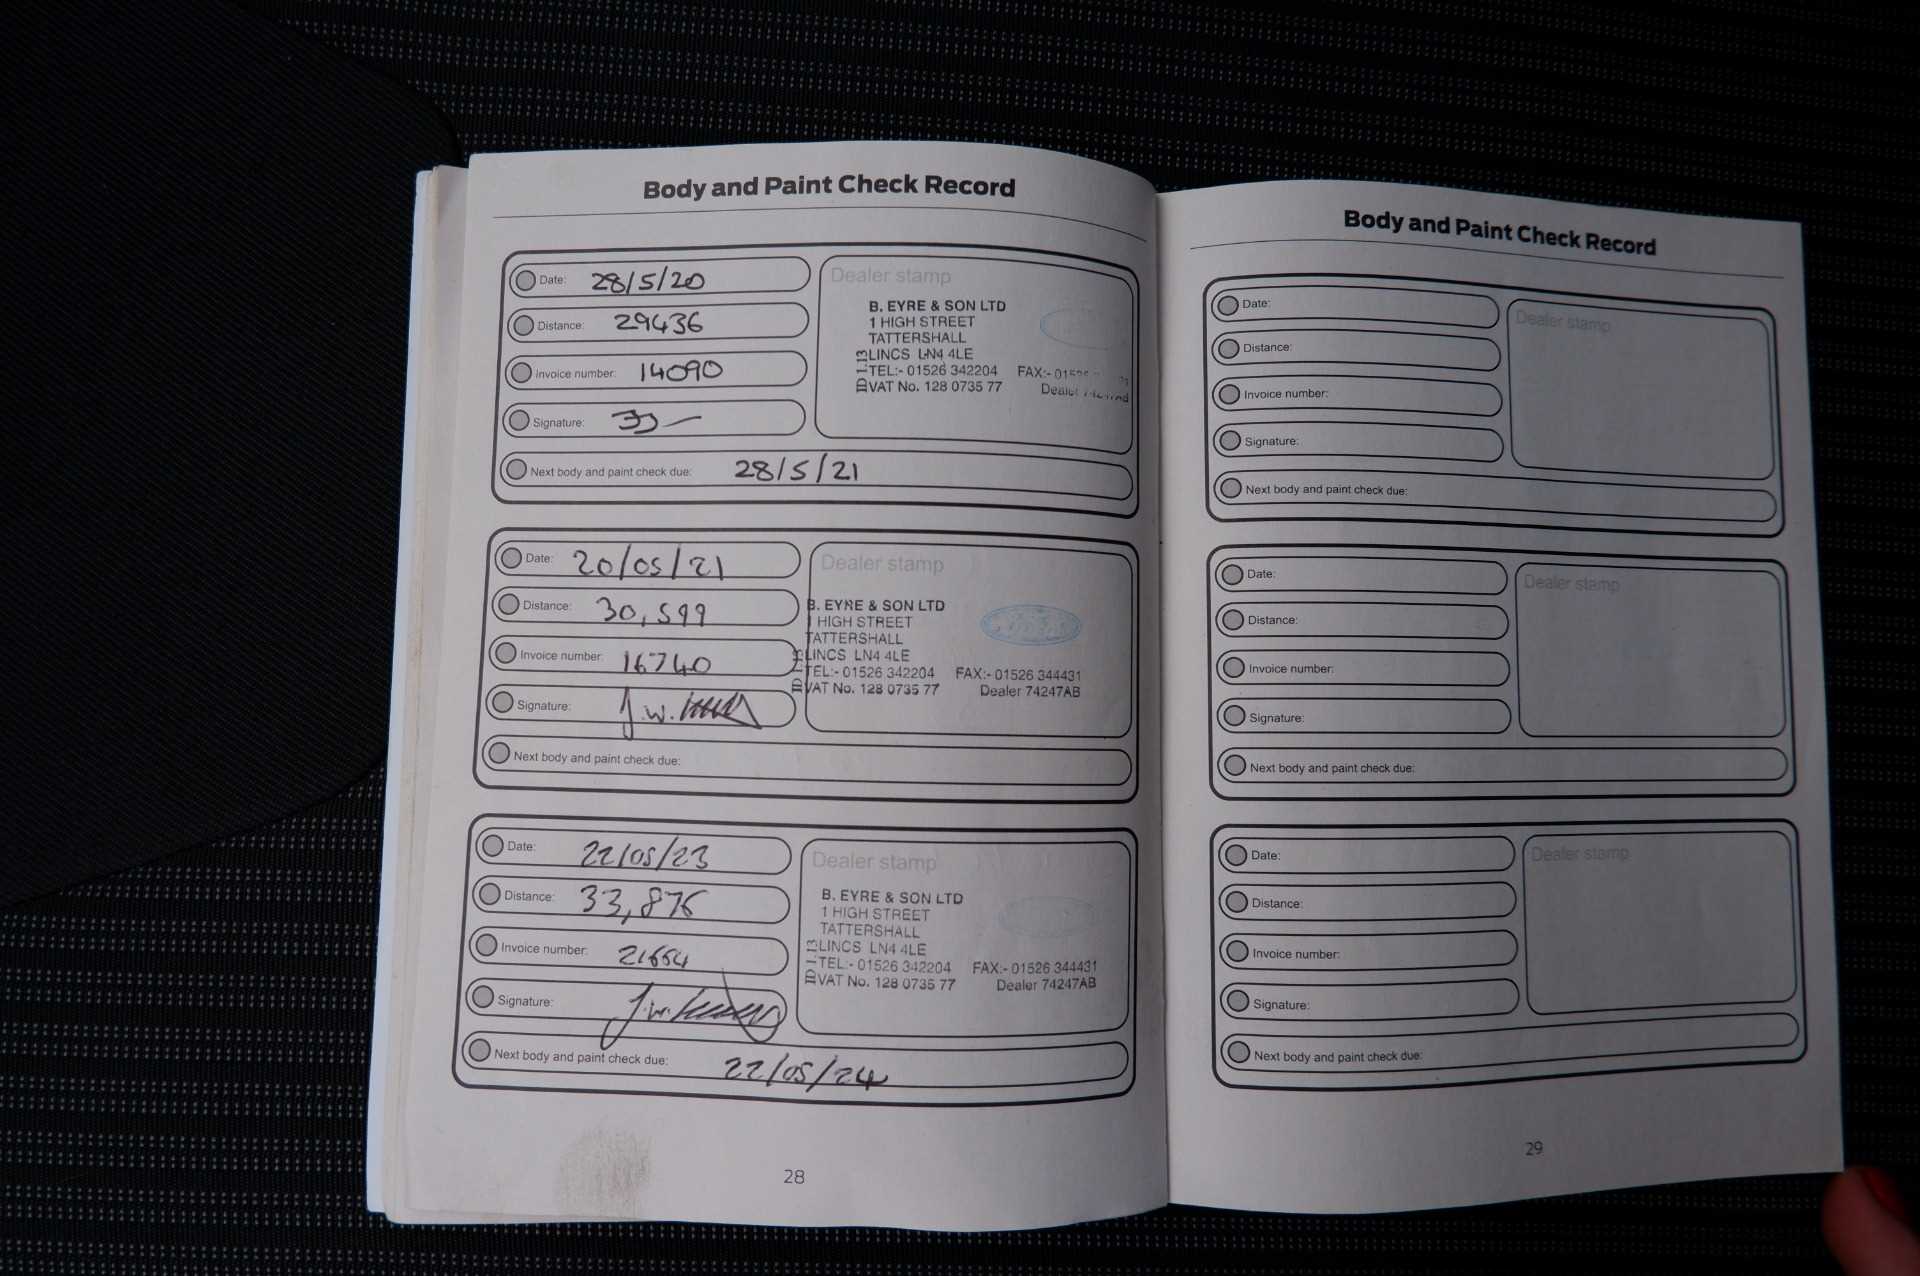 Body and Paint Check Record
Date: 28/5/20
Distance: 29436
Invoice number: 14090
Signature:
Next body and paint check due: 28/5/21
Dealer stamp
B. EYRE & SON LTD
1 HIGH STREET
TATTERSHALL
LINCS LN4 4LE
TEL:- 01526 342204 FAX:-
VAT No. 128 0735 77 Dealer
Date: 20/05/21
Distance: 30,599
Invoice number: 16740
Signature: J.W.
Next body and paint check due:
Dealer stamp
B. EYRE & SON LTD
1 HIGH STREET
TATTERSHALL
LINCS LN4 4LE
TEL:- 01526 342204 FAX:- 01526 344431
VAT No. 128 0735 77 Dealer 74247AB
Ford
Date: 22/05/23
Distance: 33,876
Invoice number: 21664
Signature: J.W.
Next body and paint check due: 22/05/24
Dealer stamp
B. EYRE & SON LTD
1 HIGH STREET
TATTERSHALL
LINCS LN4 4LE
TEL:- 01526 342204 FAX:- 01526 344431
VAT No. 128 0735 77 Dealer 74247AB
28
Body and Paint Check Record
Date:
Distance:
Invoice number:
Signature:
Next body and paint check due:
Dealer stamp
Date:
Distance:
Invoice number:
Signature:
Next body and paint check due:
Dealer stamp
Date:
Distance:
Invoice number:
Signature:
Next body and paint check due:
Dealer stamp
29